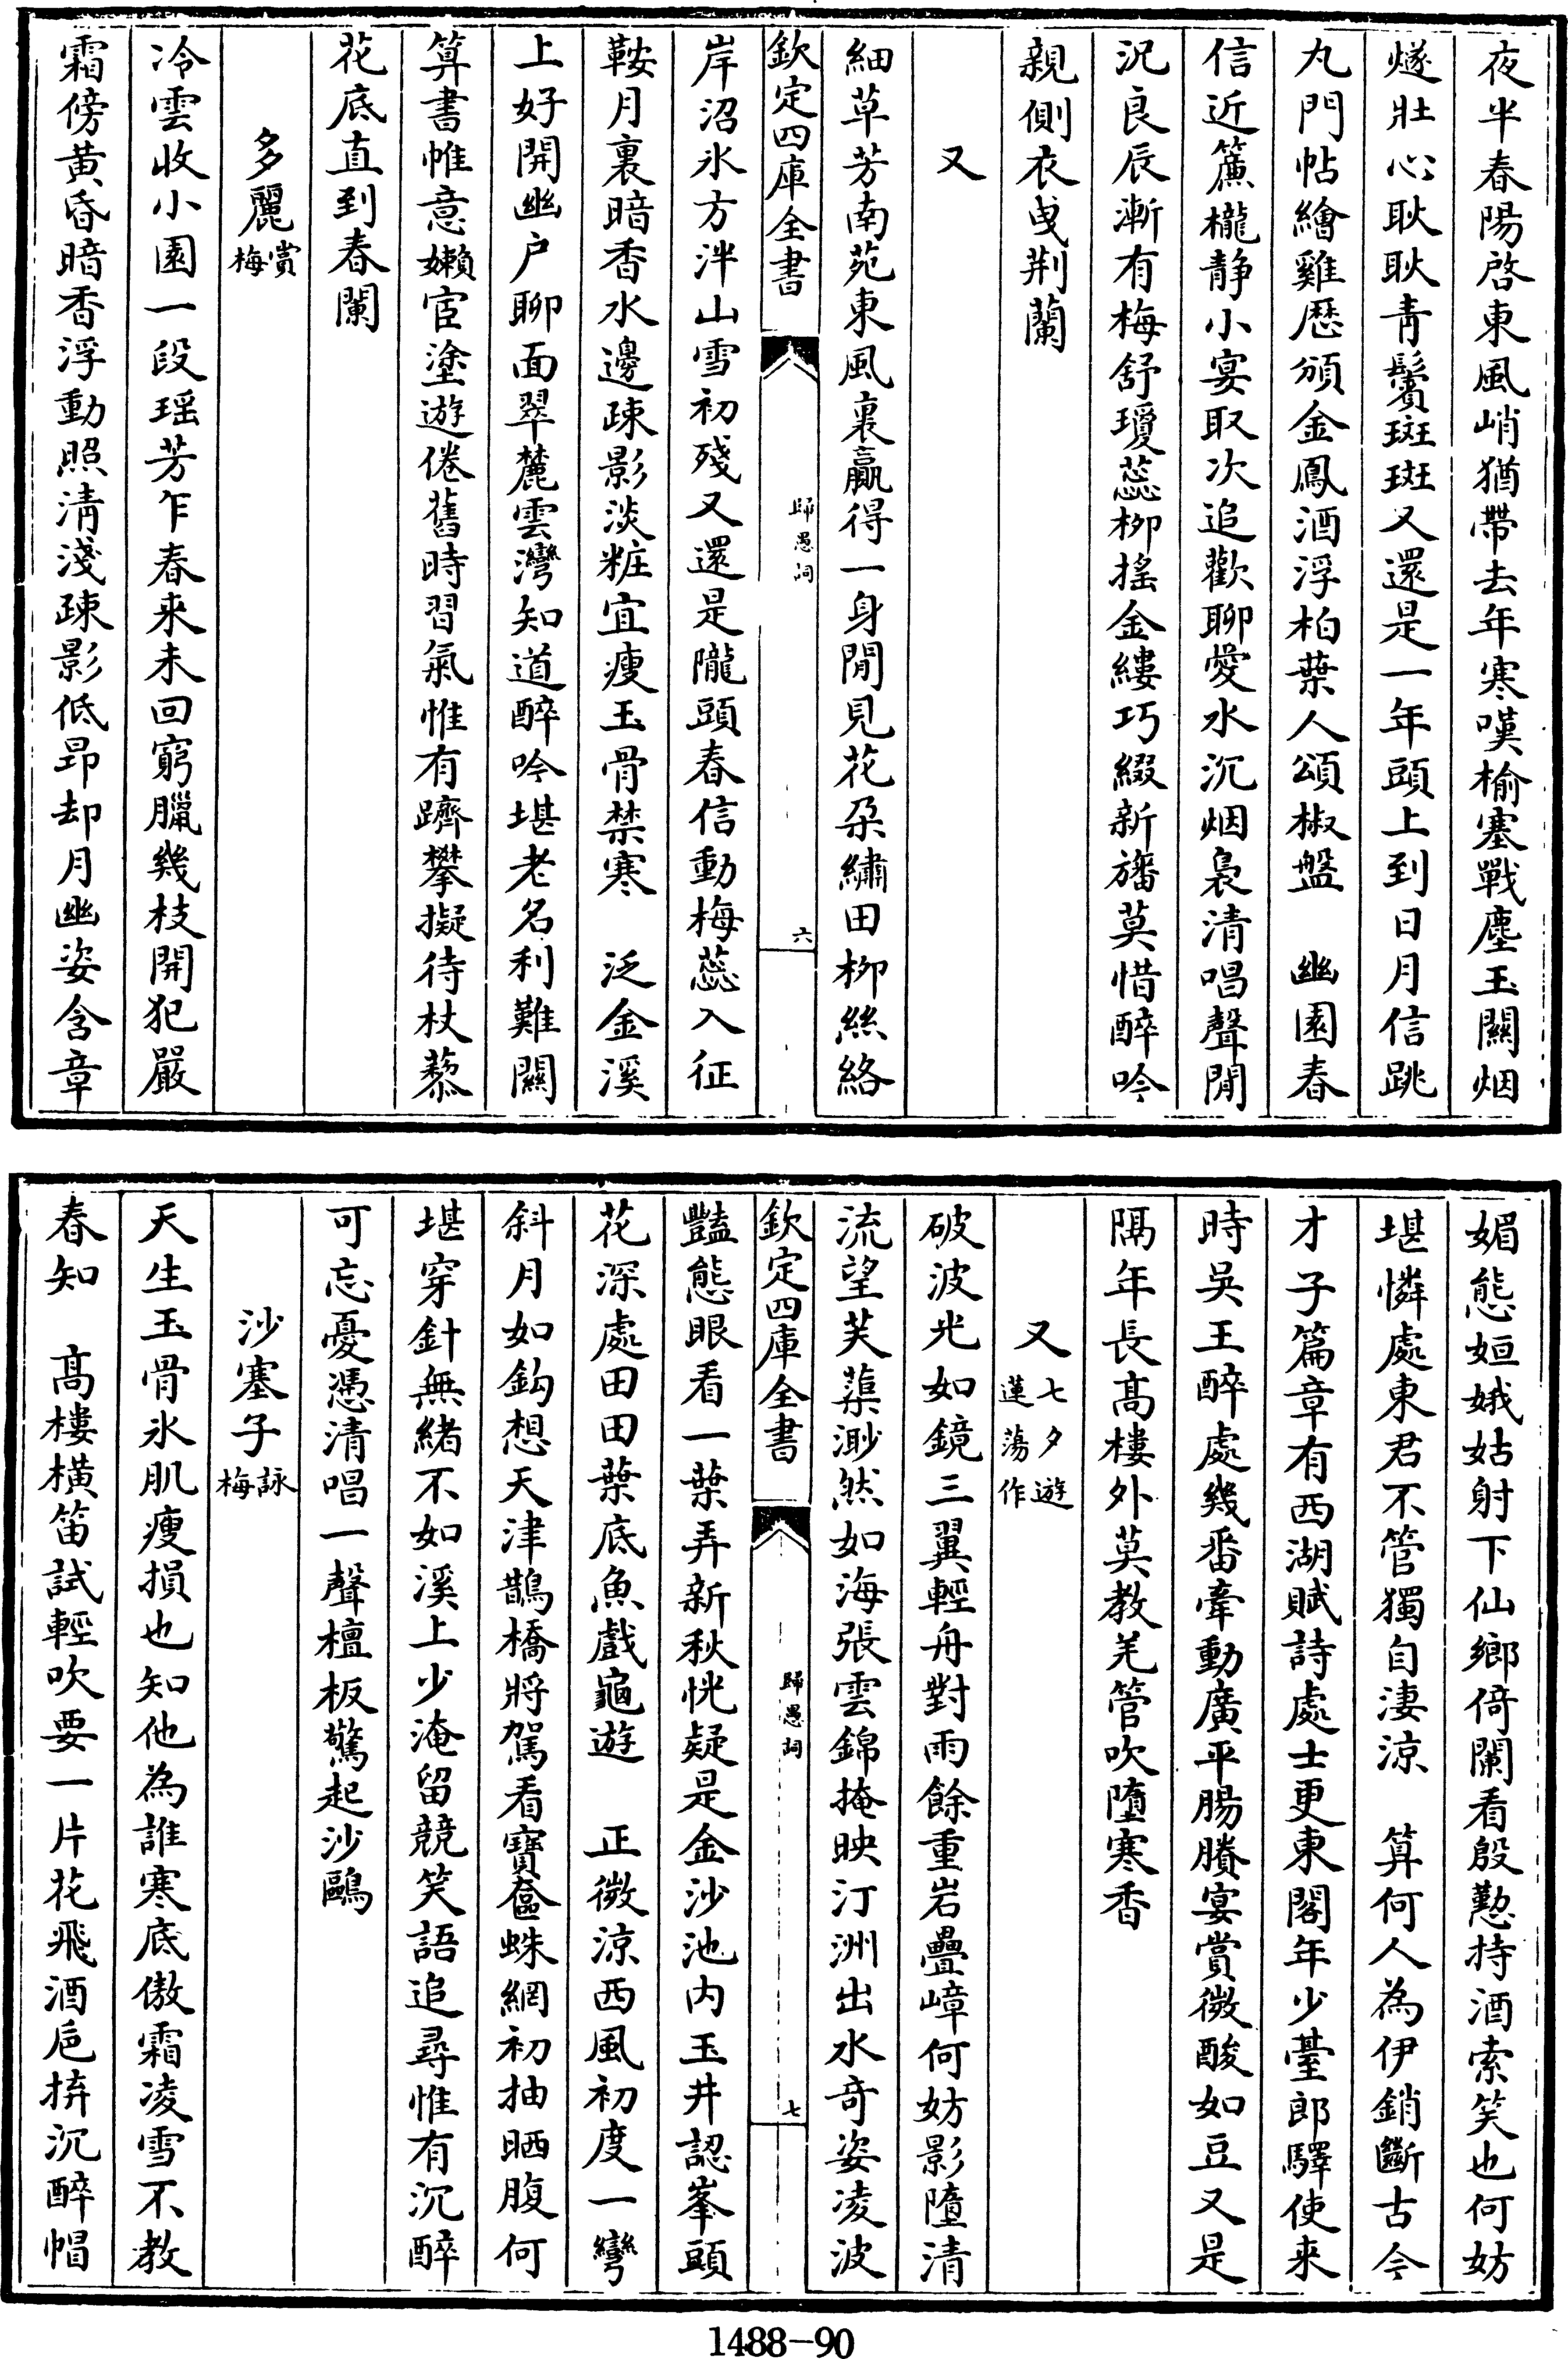 夜半春陽啓東風峭猶帶去年寒嘆榆塞戰塵玉關烟
燧壯心耿耿青鬢斑斑又還是一年頭上到日月信跳
丸門帖繪雞歴頒金鳳酒浮柏葉人頌椒盤　幽園春
信近簾櫳静小宴取次追歡聊愛水沉烟裊清唱聲閒
況良辰漸有梅舒瓊蕊柳揺金縷巧綴新旛莫惜醉吟
親側衣曳荆蘭
又
細草芳南苑東風裏贏得一身閒見花朵繡田柳絲絡
欽定四庫全書
歸愚詞
六
岸沼氷方泮山雪初殘又還是隴頭春信動梅蕊入征
鞍月裏暗香水邊疎影淡粧宜瘦玉骨禁寒　泛金溪
上好開幽户聊面翠麓雲灣知道醉吟堪老名利難關
算書帷意嬾宦塗遊倦舊時習氣惟有躋攀擬待杖藜
花底直到春闌
多麗賞梅
冷雲收小園一段瑶芳乍春来未回窮臘幾枝開犯嚴
霜傍黄昏暗香浮動照清淺疎影低昂却月幽姿含章
媚態姮娥姑射下仙鄉倚闌看殷懃持酒索笑也何妨
堪憐處東君不管獨自淒涼　算何人為伊銷斷古今
才子篇章有西湖賦詩處士更東閣年少臺郎驛使来
時吳王醉處幾番牽動廣平腸賸宴賞微酸如豆又是
隔年長髙樓外莫教羌管吹墮寒香
又七夕遊蓮蕩作
破波光如鏡三翼輕舟對雨餘重岩疊嶂何妨影墮清
流望芙蕖渺然如海張雲錦掩映汀洲出水奇姿凌波
欽定四庫全書
歸愚詞
七
豔態眼看一葉弄新秋恍疑是金沙池内玉井認峯頭
花深處田田葉底魚戲龜遊　正微涼西風初度一彎
斜月如鈎想天津鵲橋將駕看寶奩蛛網初抽晒腹何
堪穿針無緒不如溪上少淹留競笑語追尋惟有沉醉
可忘憂憑清唱一聲檀板驚起沙鷗
沙塞子詠梅
天生玉骨氷肌瘦損也知他為誰寒底傲霜凌雪不教
春知　髙樓横笛試輕吹要一片花飛酒巵拚沉醉帽
1488-90